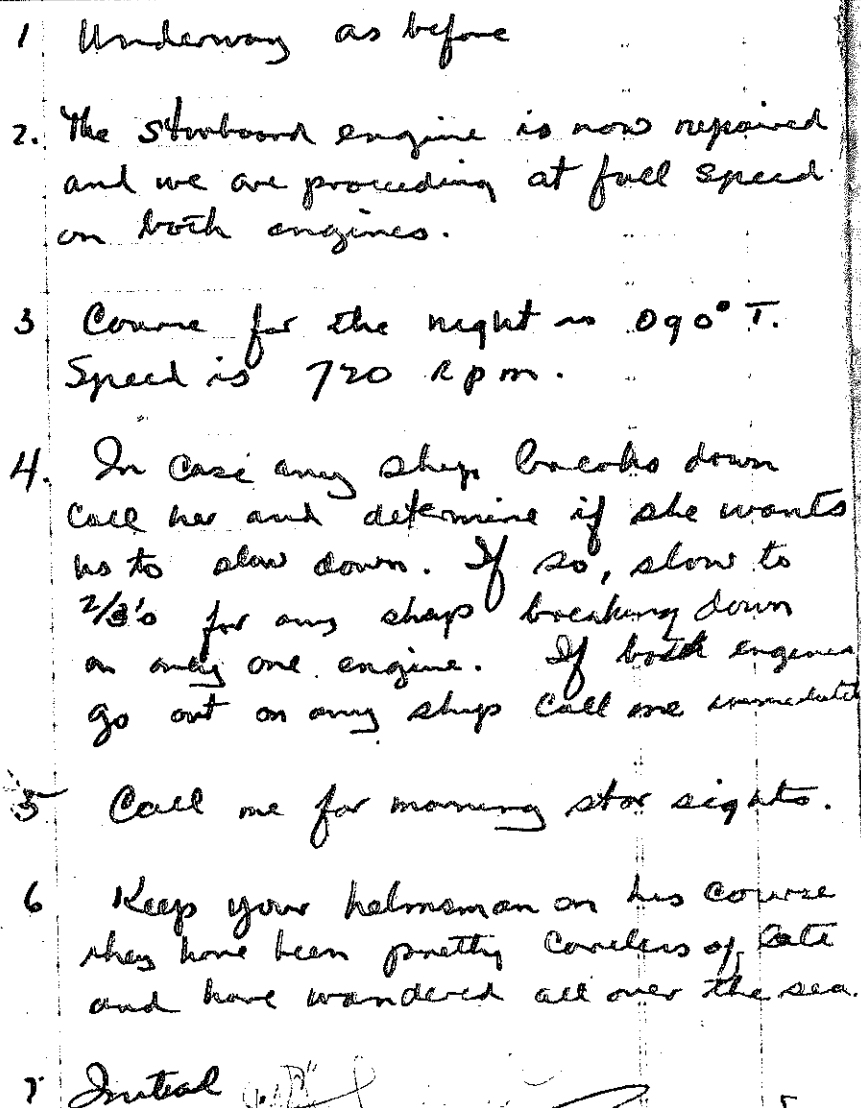 1 Underway as before
2. The starboard engine is now repaired
and we are proceeding at full speed
on both engines.
3 Course for the night is 090° T.
Speed is 720 rpm.
4. In case any ship breaks down
call her and determine if she wants
us to slow down. If so, slow to
2/3's for any ship breaking down
on only one engine. If both engines
go out on any ship call me immediately
5 Call me for morning star sights.
6 Keep your helmsman on his course
they have been pretty careless of late
and have wandered all over the sea.
7 Initial